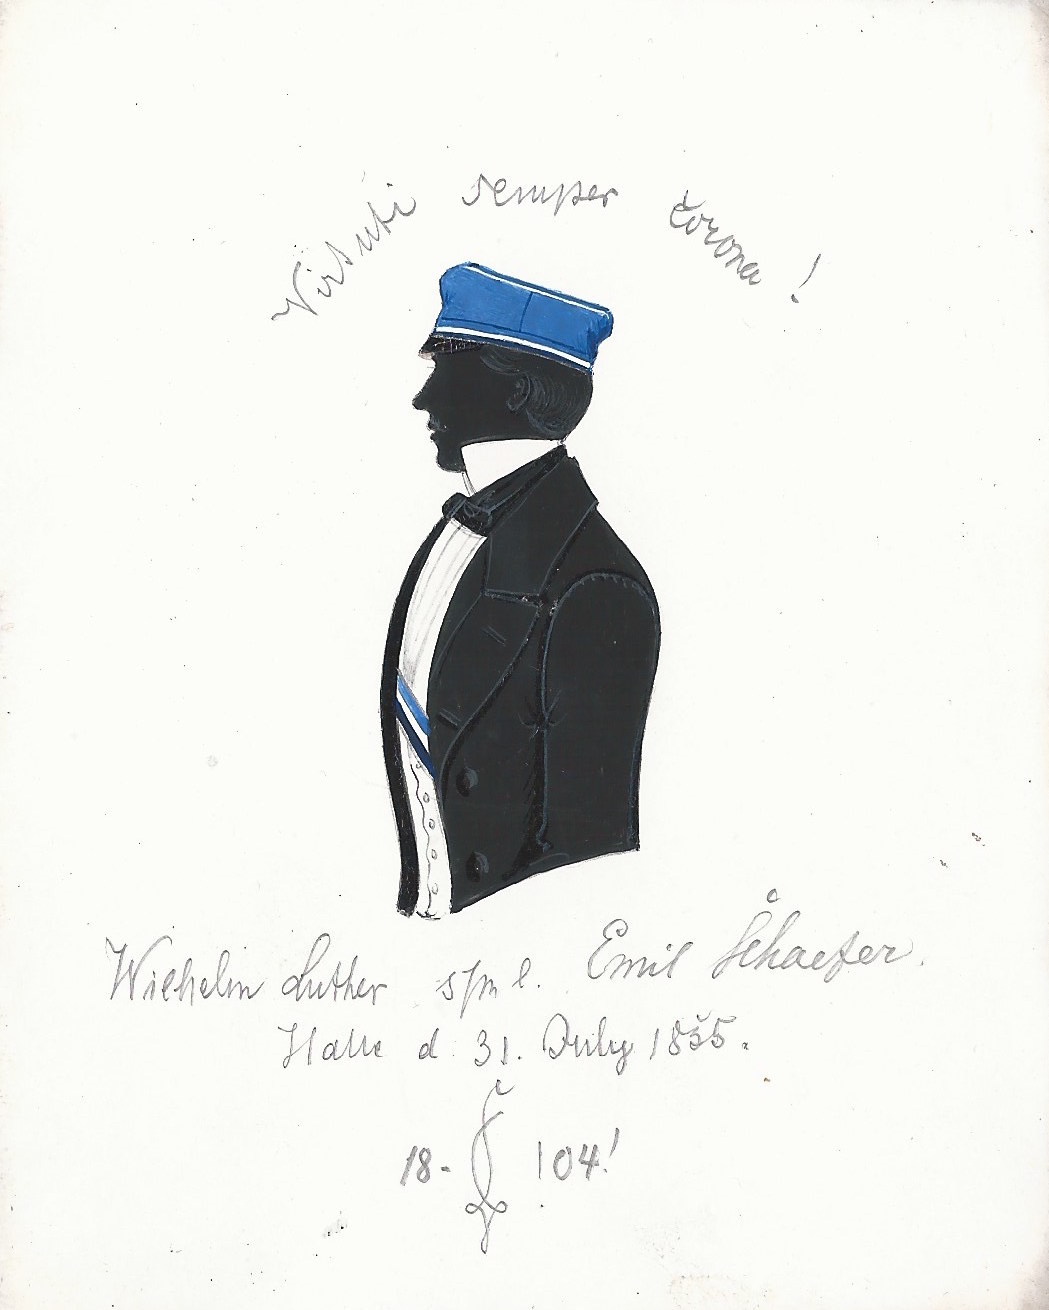 Virtuti semper corona!
Wilhelm Luther s/m l. Emil Schaefer.
Halle d. 31. July 1855.
18- 104!